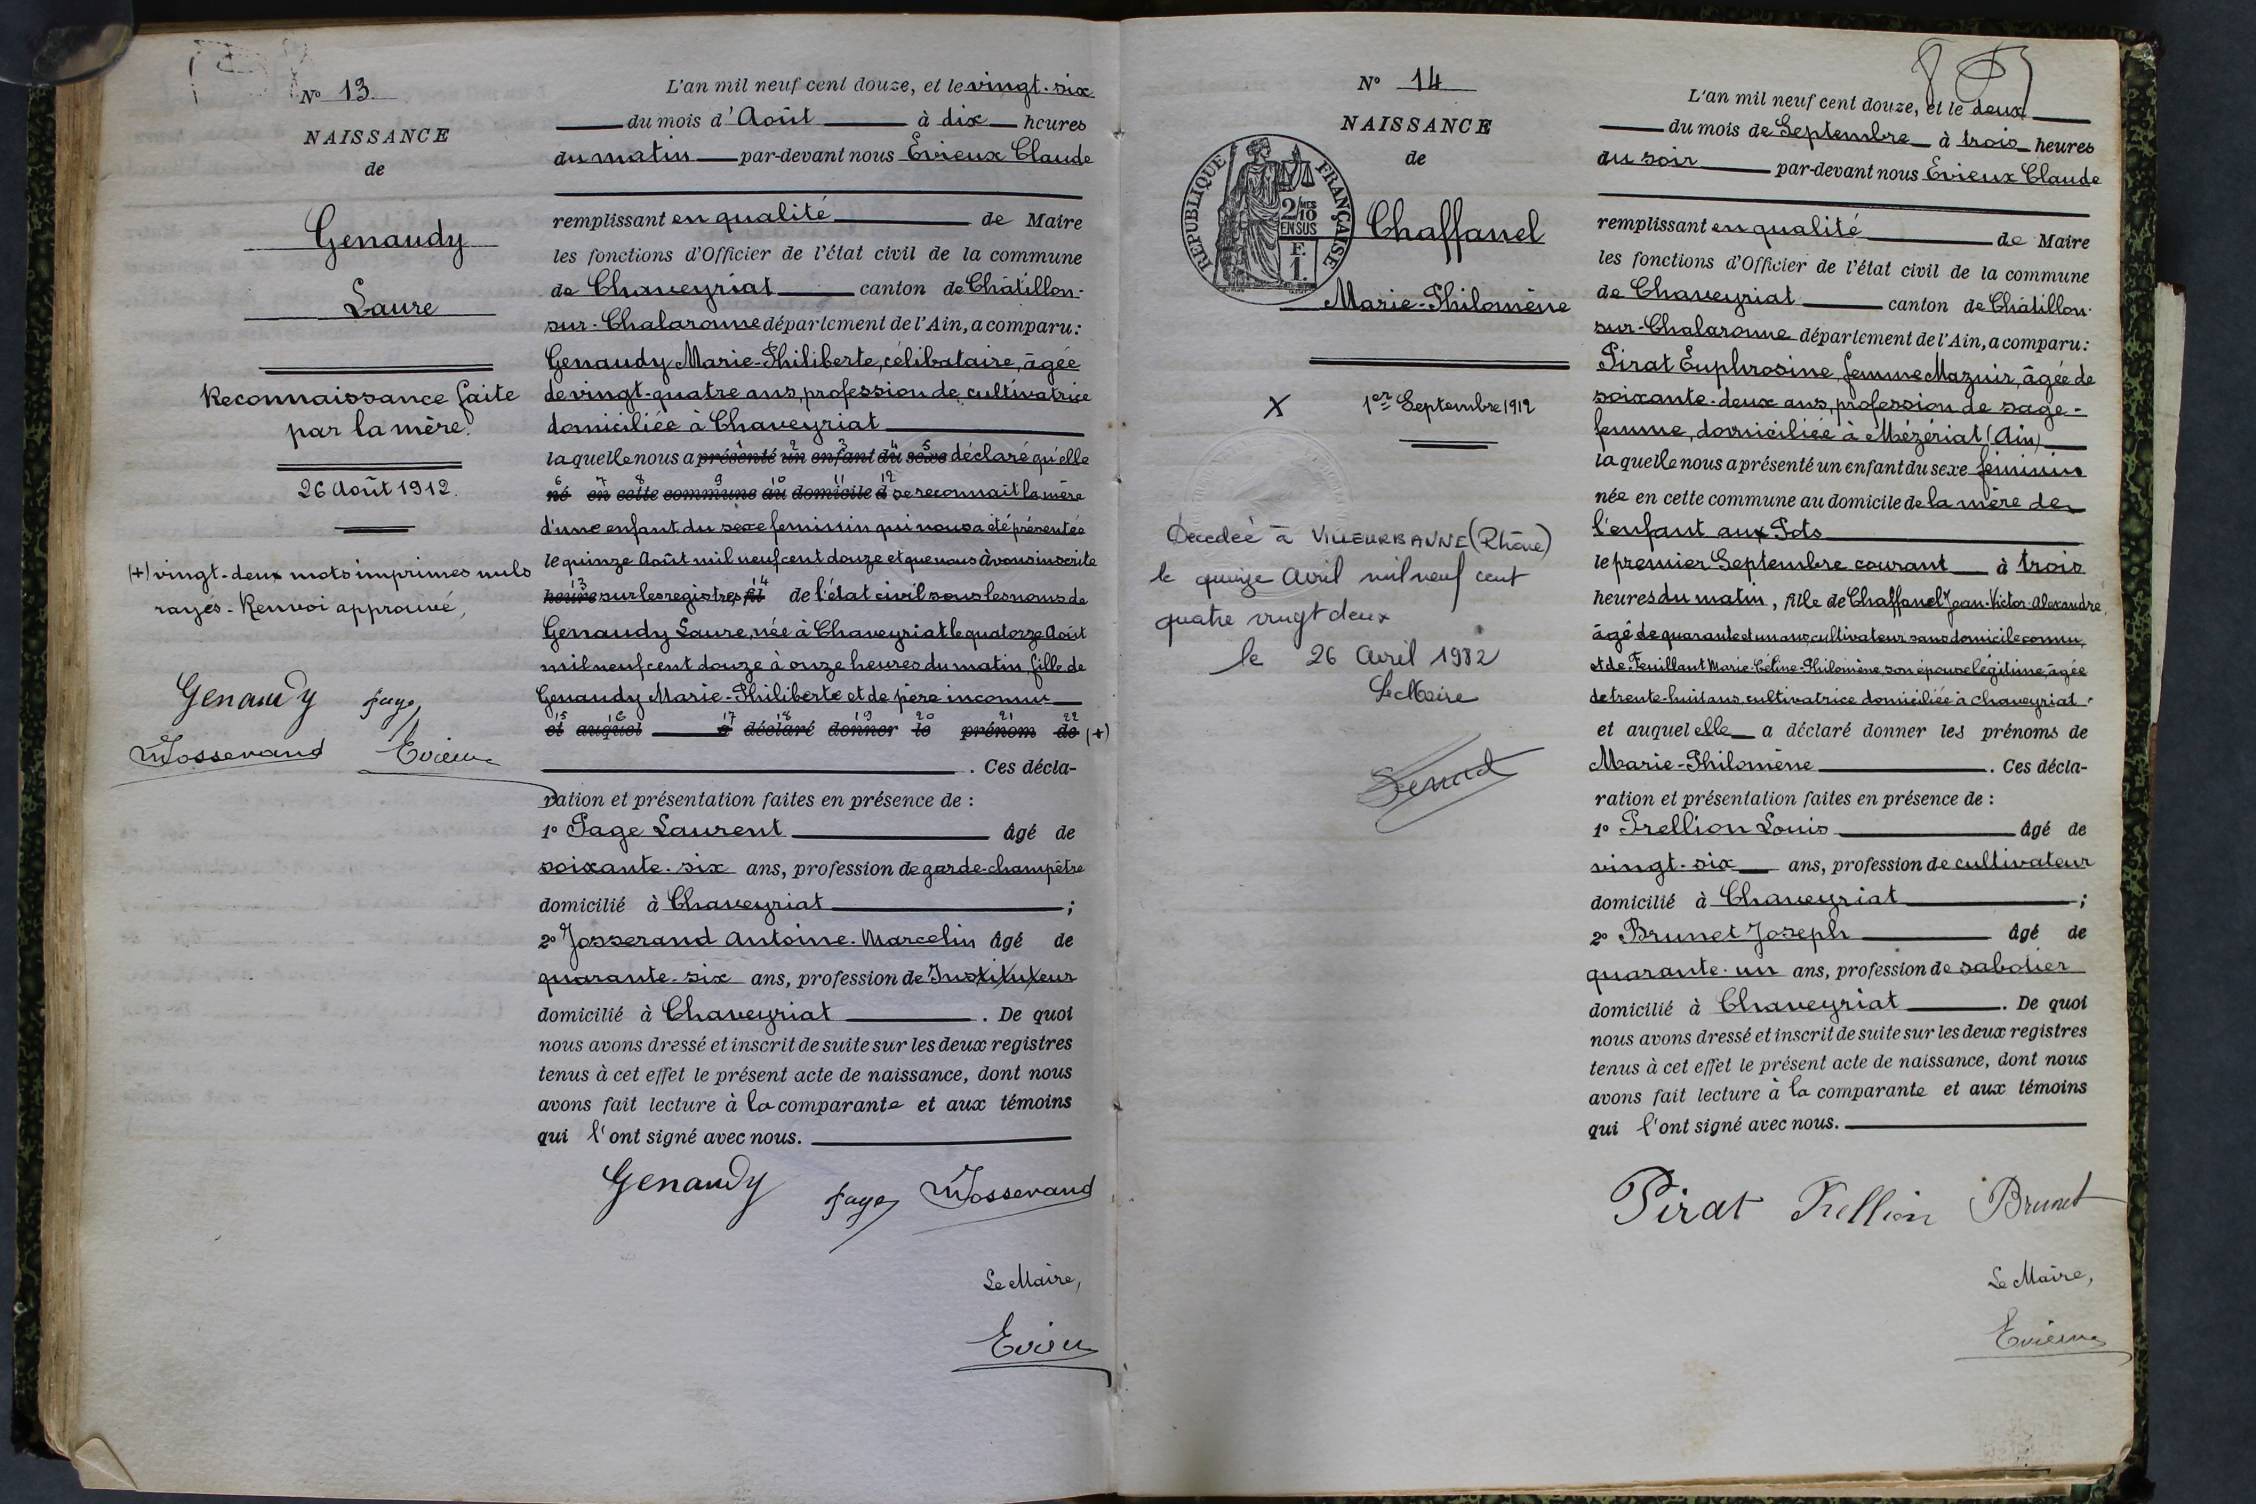 N° 13.
NAISSANCE
de
Genaudy
Laure
Reconnaissance faite
par la mère.
26 Août 1912.
(+) vingt-deux mots imprimés nuls
rayés - Renvoi approuvé,
Genaudy Page
Josserand Evieux
L'an mil neuf cent douze, et le vingt-six
du mois d'Août à dix heures
du matin par-devant nous Evieux Claude
remplissant en qualité de Maire
les fonctions d'Officier de l'état civil de la commune
de Chaveyriat canton de Châtillon-
sur-Chalaronne département de l'Ain, a comparu:
Genaudy Marie-Philiberte, célibataire, âgée
de vingt-quatre ans, profession de cultivatrice
domiciliée à Chaveyriat
1 2 3 4 5
laquelle nous a présenté un enfant du sexe déclaré qu'elle
6 7 8 9 10 11 12
né en cette commune au domicile d se reconnaît la mère
d'une enfant du sexe féminin qui nous a été présentée
le quinze Août mil neuf cent douze et que nous avons inscrite
13 14
heure sur les registres fil de l'état civil sous les noms de
Genaudy Laure, née à Chaveyriat le quatorze Août
mil neuf cent douze à onze heures du matin, fille de
Genaudy Marie-Philiberte et de père inconnu
15 16 17 18 19 20 21 22
et auquel a déclaré donner le prénom de (+)
. Ces décla-
ration et présentation faites en présence de :
1° Page Laurent âgé de
soixante-six ans, profession de garde-champêtre
domicilié à Chaveyriat ;
2° Josserand Antoine-Marcelin âgé de
quarante-six ans, profession de Instituteur
domicilié à Chaveyriat . De quoi
nous avons dressé et inscrit de suite sur les deux registres
tenus à cet effet le présent acte de naissance, dont nous
avons fait lecture à la comparante et aux témoins
qui l'ont signé avec nous.
Genaudy Page Josserand
Le Maire,
Evieux
N° 14
NAISSANCE
de
RÉPUBLIQUE FRANÇAISE
2/10 MES
EN SUS
F.
1.
Chaffanel
Marie-Philomène
X 1er Septembre 1912
Décédée à VILLEURBANNE (Rhône)
le quinze Avril mil neuf cent
quatre vingt deux
le 26 Avril 1982
Le Maire
L'an mil neuf cent douze, et le deux
du mois de Septembre à trois heures
du soir par-devant nous Evieux Claude
remplissant en qualité de Maire
les fonctions d'Officier de l'état civil de la commune
de Chaveyriat canton de Châtillon-
sur-Chalaronne département de l'Ain, a comparu:
Pirat Euphrosine, femme Mazuir, âgée de
soixante-deux ans, profession de sage-
femme, domiciliée à Mézériat (Ain)
laquelle nous a présenté un enfant du sexe féminin
née en cette commune au domicile de la mère de
l'enfant aux Pots
le premier Septembre courant à trois
heures du matin, fille de Chaffanel Jean-Victor-Alexandre,
âgé de quarante et un ans, cultivateur sans domicile connu,
et de Feuillant Marie-Céline-Philomène, son épouse légitime, âgée
de trente-huit ans, cultivatrice domiciliée à Chaveyriat
et auquel elle a déclaré donner les prénoms de
Marie-Philomène . Ces décla-
ration et présentation faites en présence de :
1° Prellion Louis âgé de
vingt-six ans, profession de cultivateur
domicilié à Chaveyriat ;
2° Brunet Joseph âgé de
quarante-un ans, profession de sabotier
domicilié à Chaveyriat . De quoi
nous avons dressé et inscrit de suite sur les deux registres
tenus à cet effet le présent acte de naissance, dont nous
avons fait lecture à la comparante et aux témoins
qui l'ont signé avec nous.
Pirat Prellion Brunet
Le Maire,
Evieux